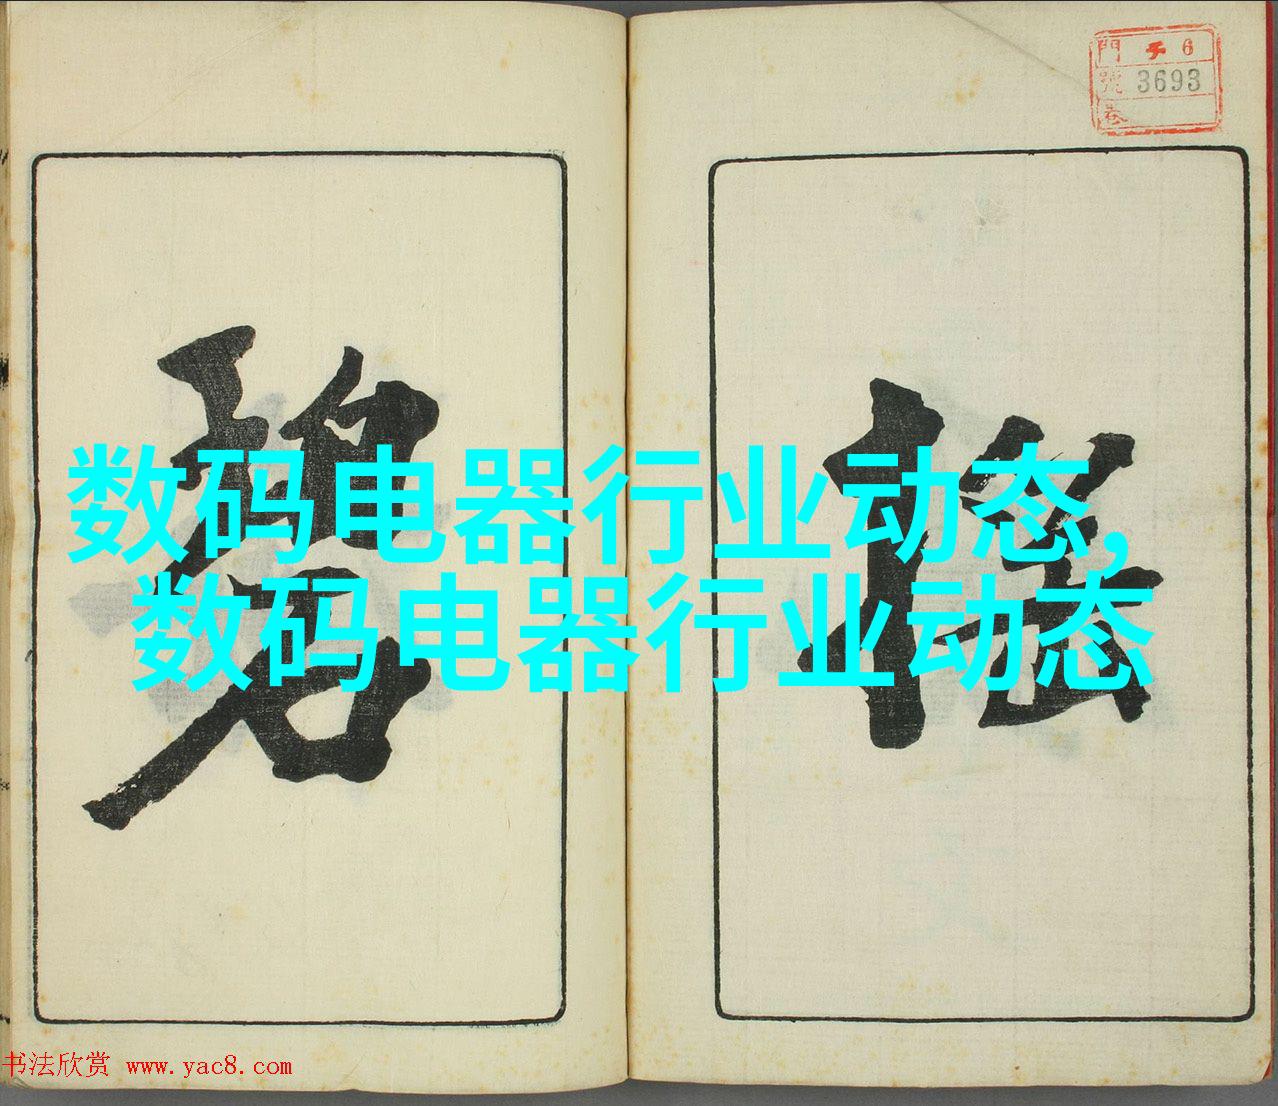 門 6
號 3693
巻
碧
数码电器行业动态,
数码电器行业动态
书法欣赏 www.yac8.com